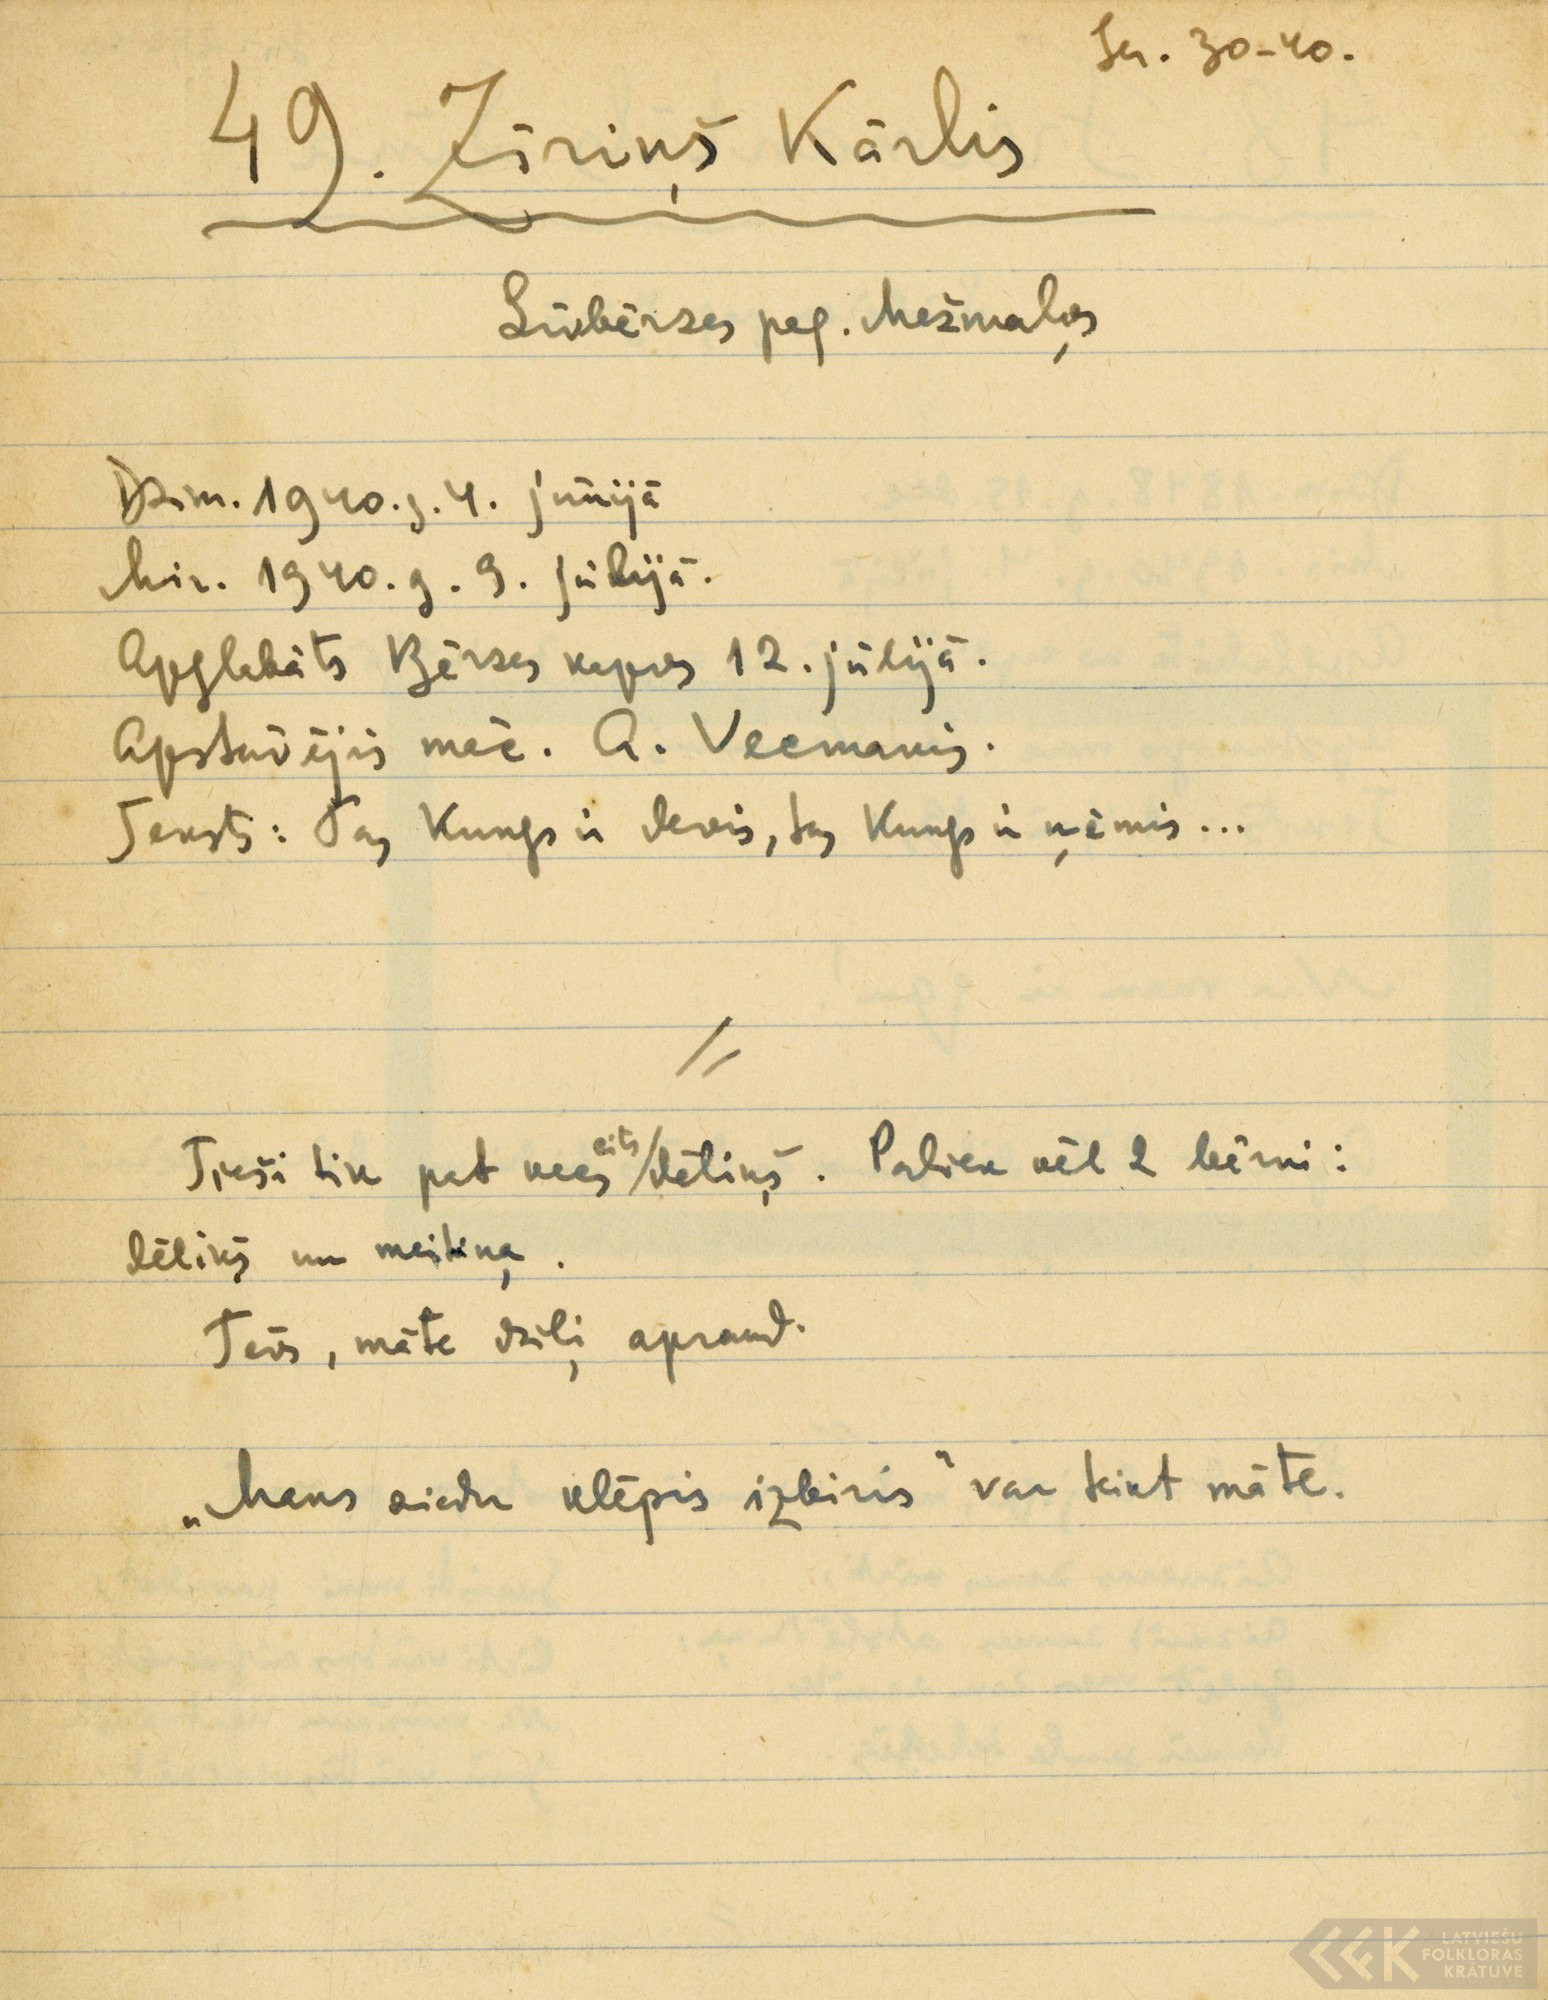 Sa. 30-40.
49. Zīriņš Kārlis
Līvbērzes pag. Mežmaļos
Dzim. 1940. g. 4. jūnijā
Mir. 1940. g. 9. jūlijā.
Apglabāts Bērzes kapos 12. jūlijā.
Apstāvējis māc. A. Vecmanis.
Teksts: Tas Kungs ir devis, tas Kungs ir ņēmis...
//
Tieši tik pat vecs cits/dēliņš. Paliek vēl 2 bērni:
dēliņš un meitiņa.
Tēvs, māte dziļi apraud.
„Mans ziedu klēpis izbiris" var teikt māte.
LATVIEŠU
FOLKLORAS
KRĀTUVE